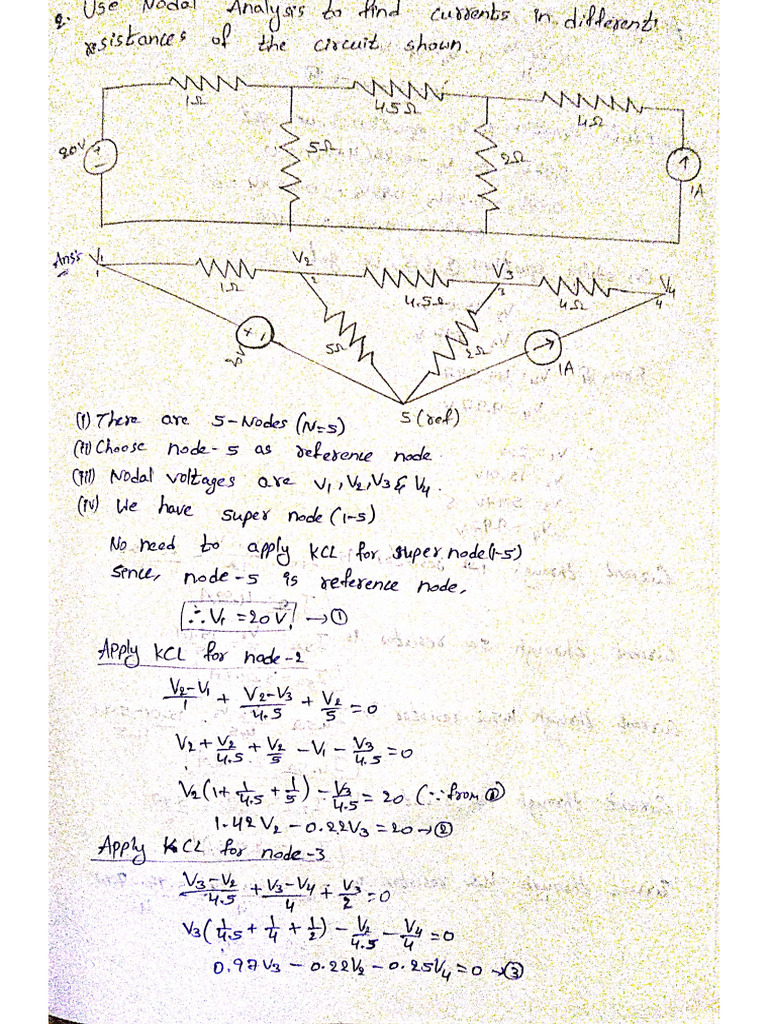 2. Use Nodal Analysis to find currents in different
resistances of the circuit shown.
1Ω
45Ω
4Ω
20V
+
-
5Ω
2Ω
1A
Ans:
V1
1
V2
2
V3
3
V4
4
1Ω
4.5Ω
4Ω
20V
5Ω
2Ω
1A
5 (ref)
(i) There are 5-Nodes (N=5)
(ii) Choose node-5 as reference node.
(iii) Nodal voltages are V1, V2, V3 & V4.
(iv) We have super node (1-5)
No need to apply KCL for super node (1-5)
Sence, node-5 is reference node,
∴ V1 = 20 V → ①
Apply KCL for node-2
(V2-V1)/1 + (V2-V3)/4.5 + V2/5 = 0
V2 + V2/4.5 + V2/5 - V1 - V3/4.5 = 0
V2(1 + 1/4.5 + 1/5) - V3/4.5 = 20 (∵ from ①)
1.42V2 - 0.22V3 = 20 → ②
Apply KCL for node-3
(V3-V2)/4.5 + (V3-V4)/4 + V3/2 = 0
V3(1/4.5 + 1/4 + 1/2) - V2/4.5 - V4/4 = 0
0.97V3 - 0.22V2 - 0.25V4 = 0 → ③